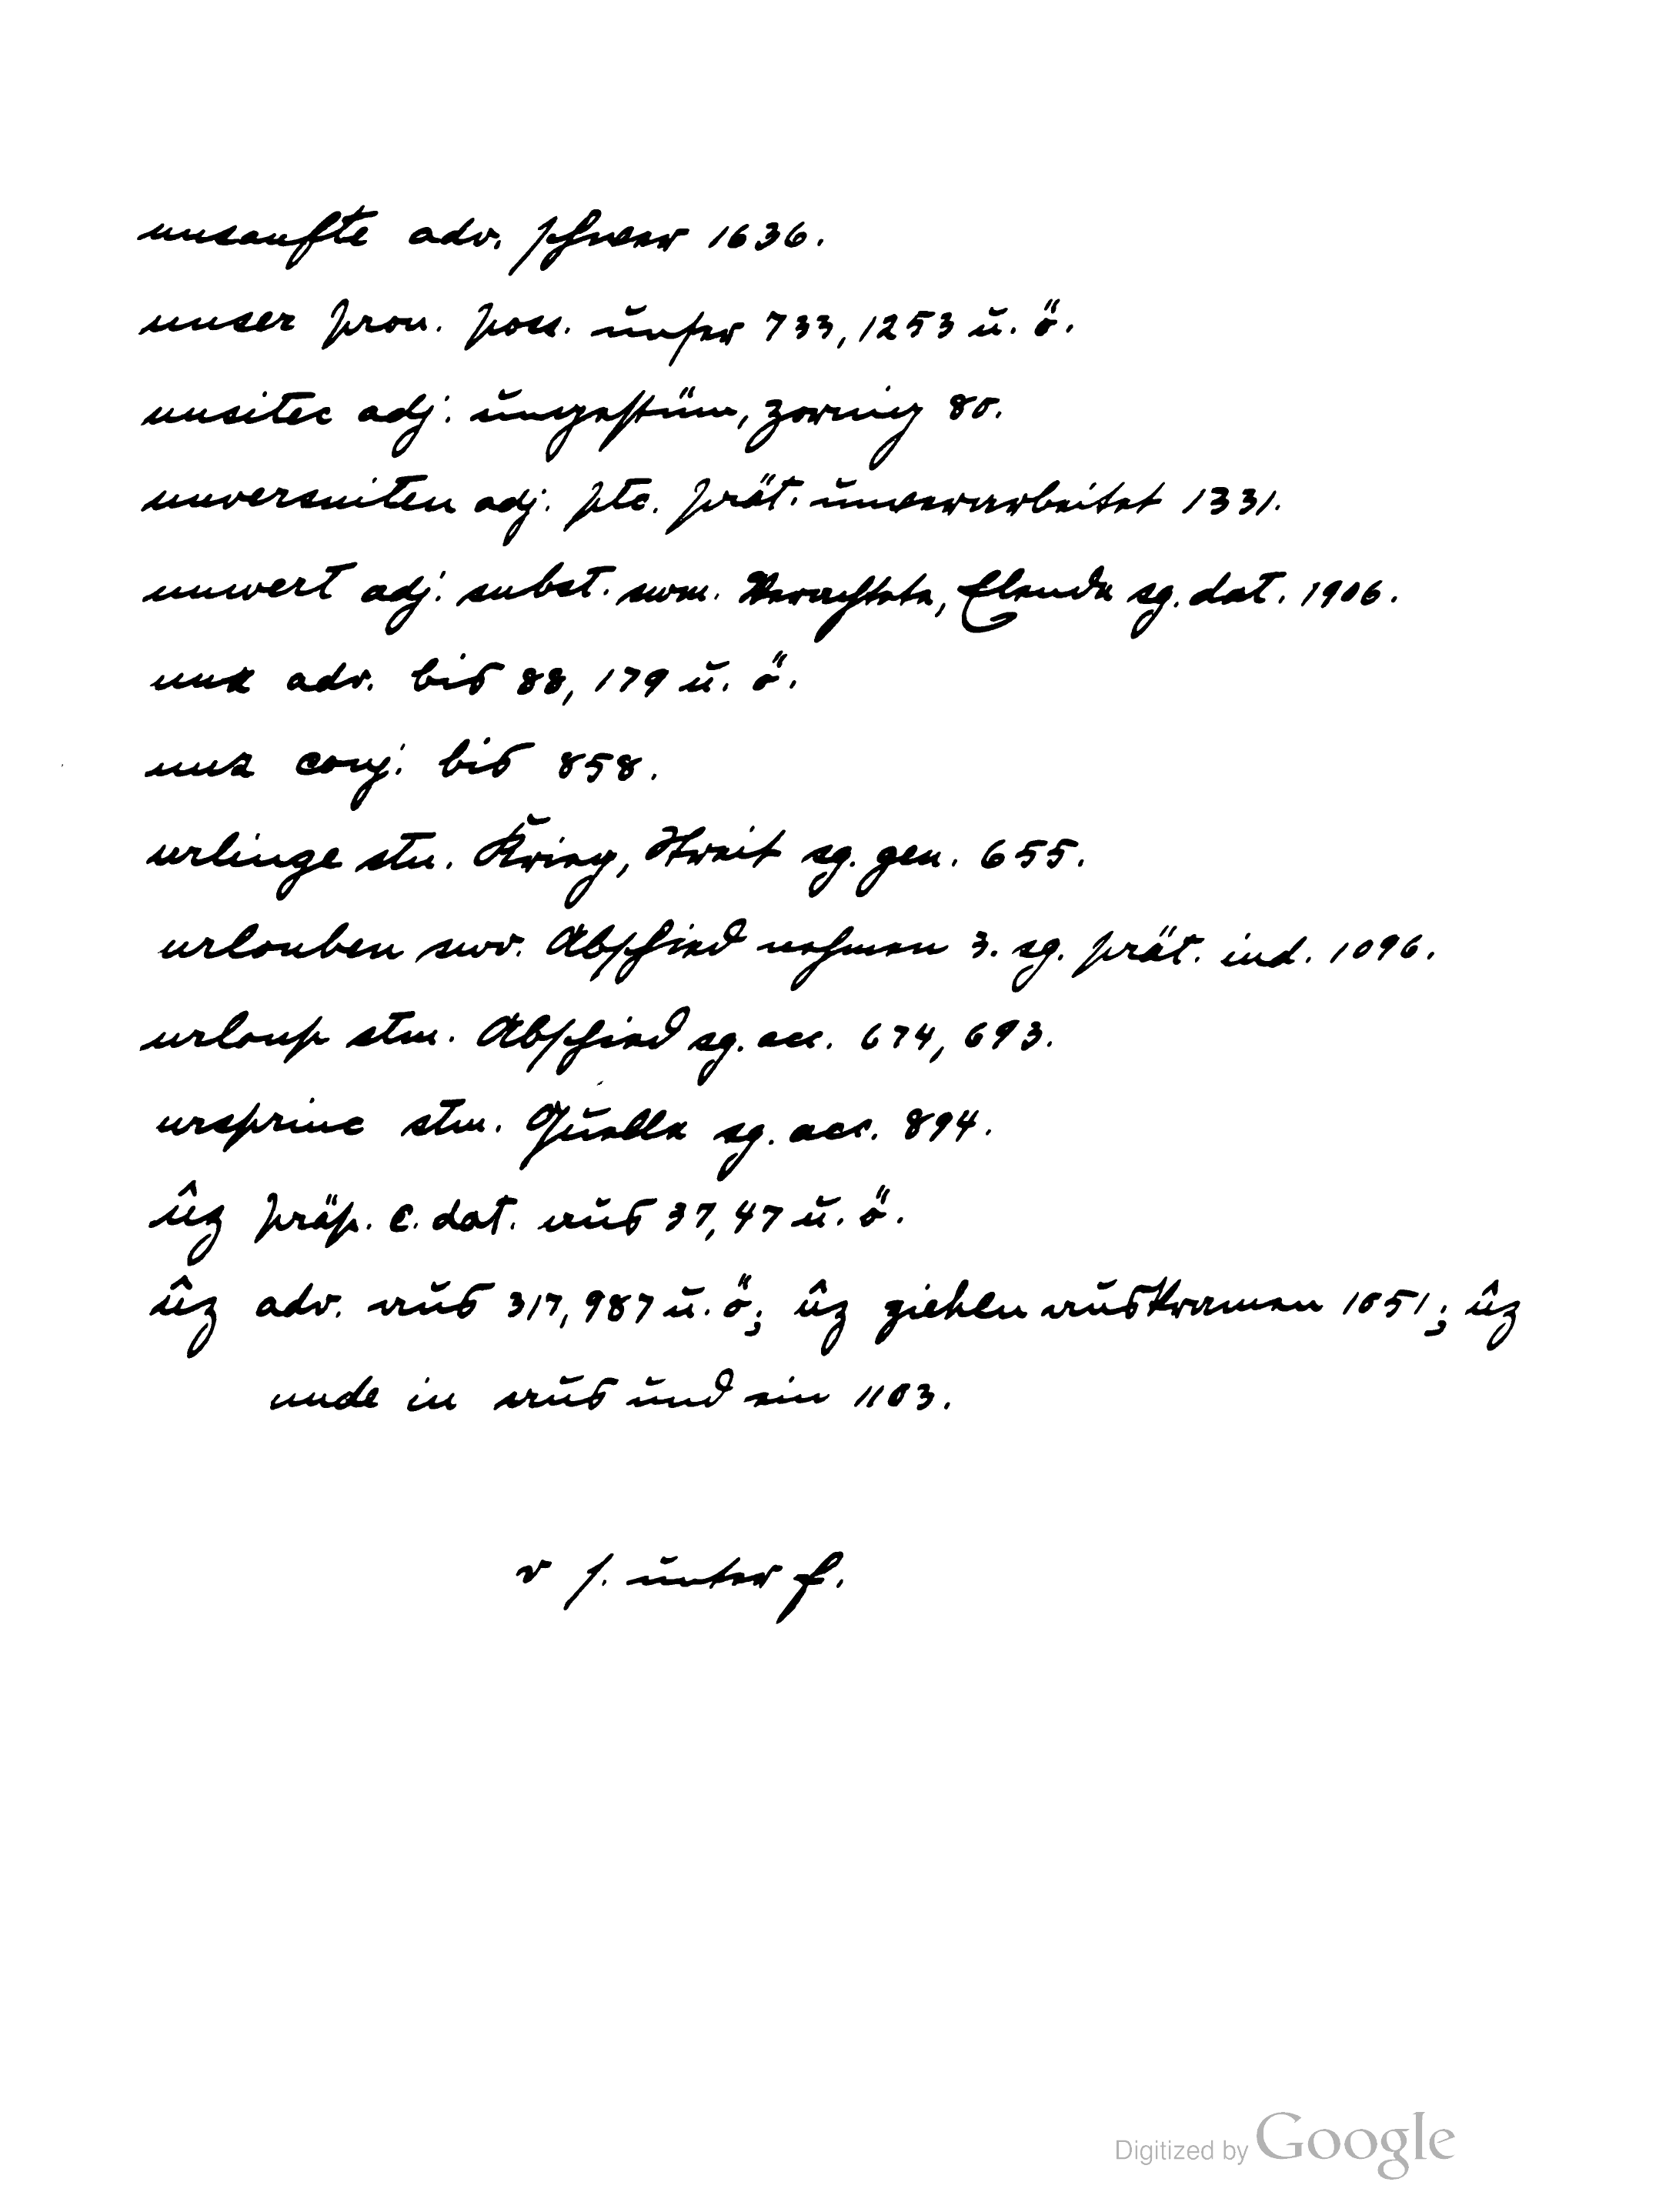 unsanfte adv. schwer 1636.
unser pron. poss. unser 733, 1253 u. ö.
unsitec adj. ungestüm, zornig 80.
unversniten adj. ptc. prät. unverarbeitet 1331.
unwert adj. subst. swm. Verachtete, Elende sg. dat. 1906.
unz adv. bis 88, 179 u. ö.
unz conj. bis 858.
urlinge stn. Krieg, Streit sg. gen. 655.
urlouben swv. Abschied nehmen 3. sg. prät. ind. 1096.
urloup stm. Abschied sg. acc. 674, 693.
ursprinc stm. Quelle sg. acc. 894.
ûz präp. c. dat. aus 37, 47 u. ö.
ûz adv. aus 317, 987 u. ö; ûz ziehen auskramen 1051; ûz
unde in aus und ein 1103.
v s. unter f.
Digitized by Google